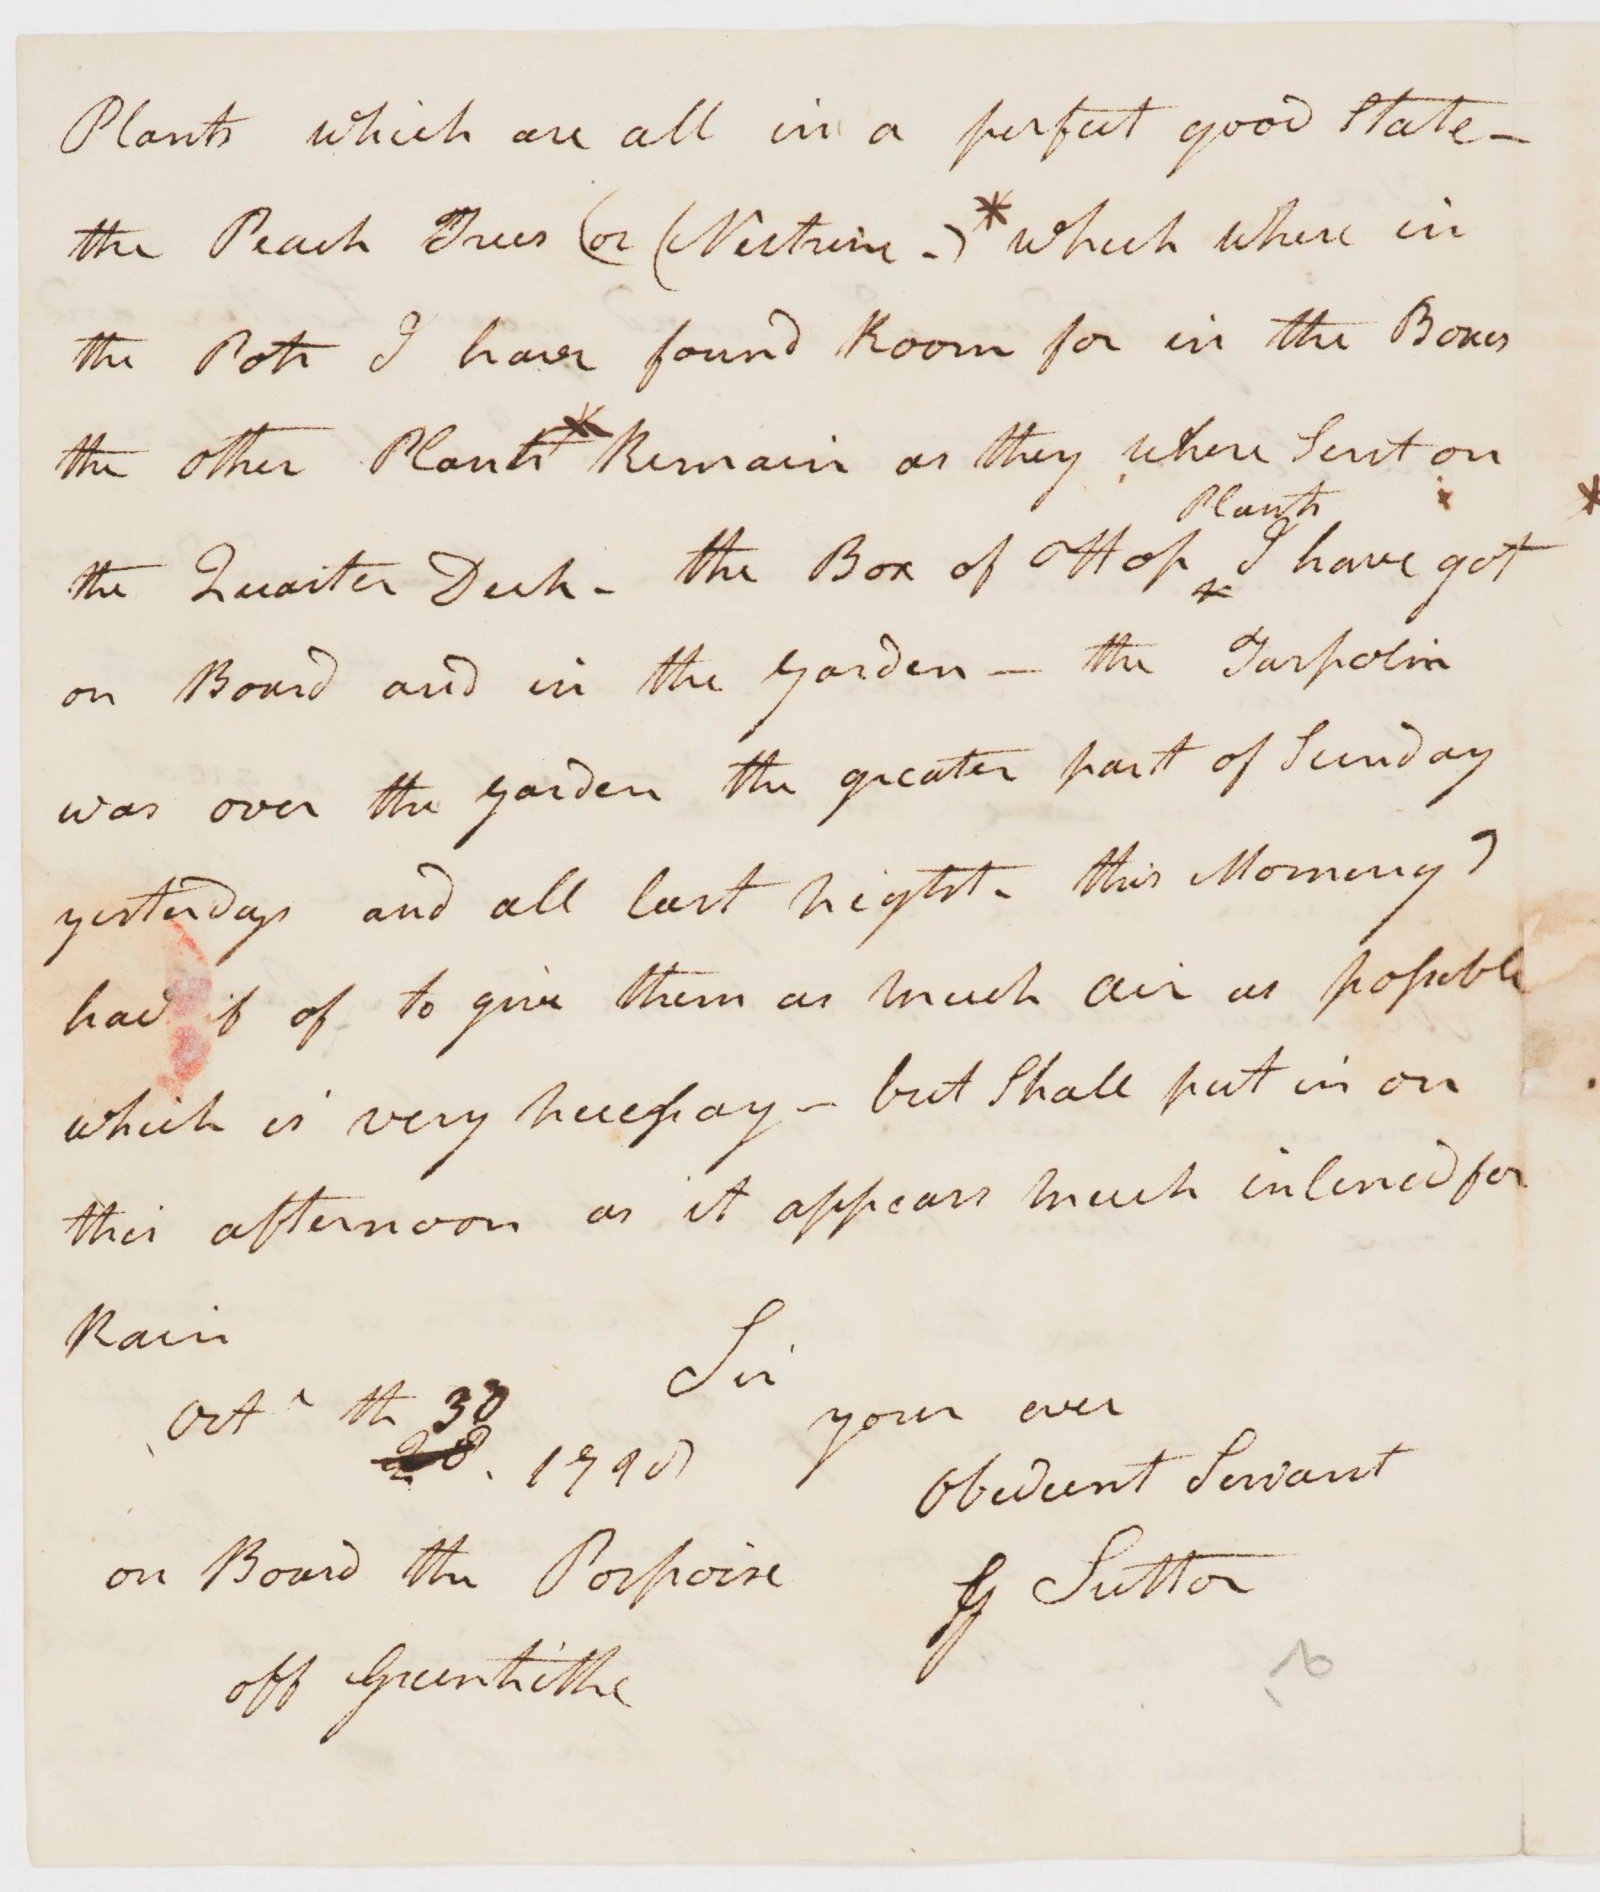 Plants which are all in a perfect good State –
the Peach Trees (or (Nectrine -) * which where in
the Pots I have found Room for in the Boxes
the other Plants * Remain as they where Sent on
Plants
the Quarter Deck - the Box of Hop * I have got *
on Board and in the Garden – the Tarpolin
was over the Garden the greater part of Sunday
yesterday and all last night - this Morning I
had it of to give them as much air as possible
which is very necessay – but Shall put in on
this afternoon as it appears much inlined for
Rain
Sir
Octr th 30
28. 1798
your ever
Obedient Servant
on Board the Porpoise
G Suttor
off Greenhithe